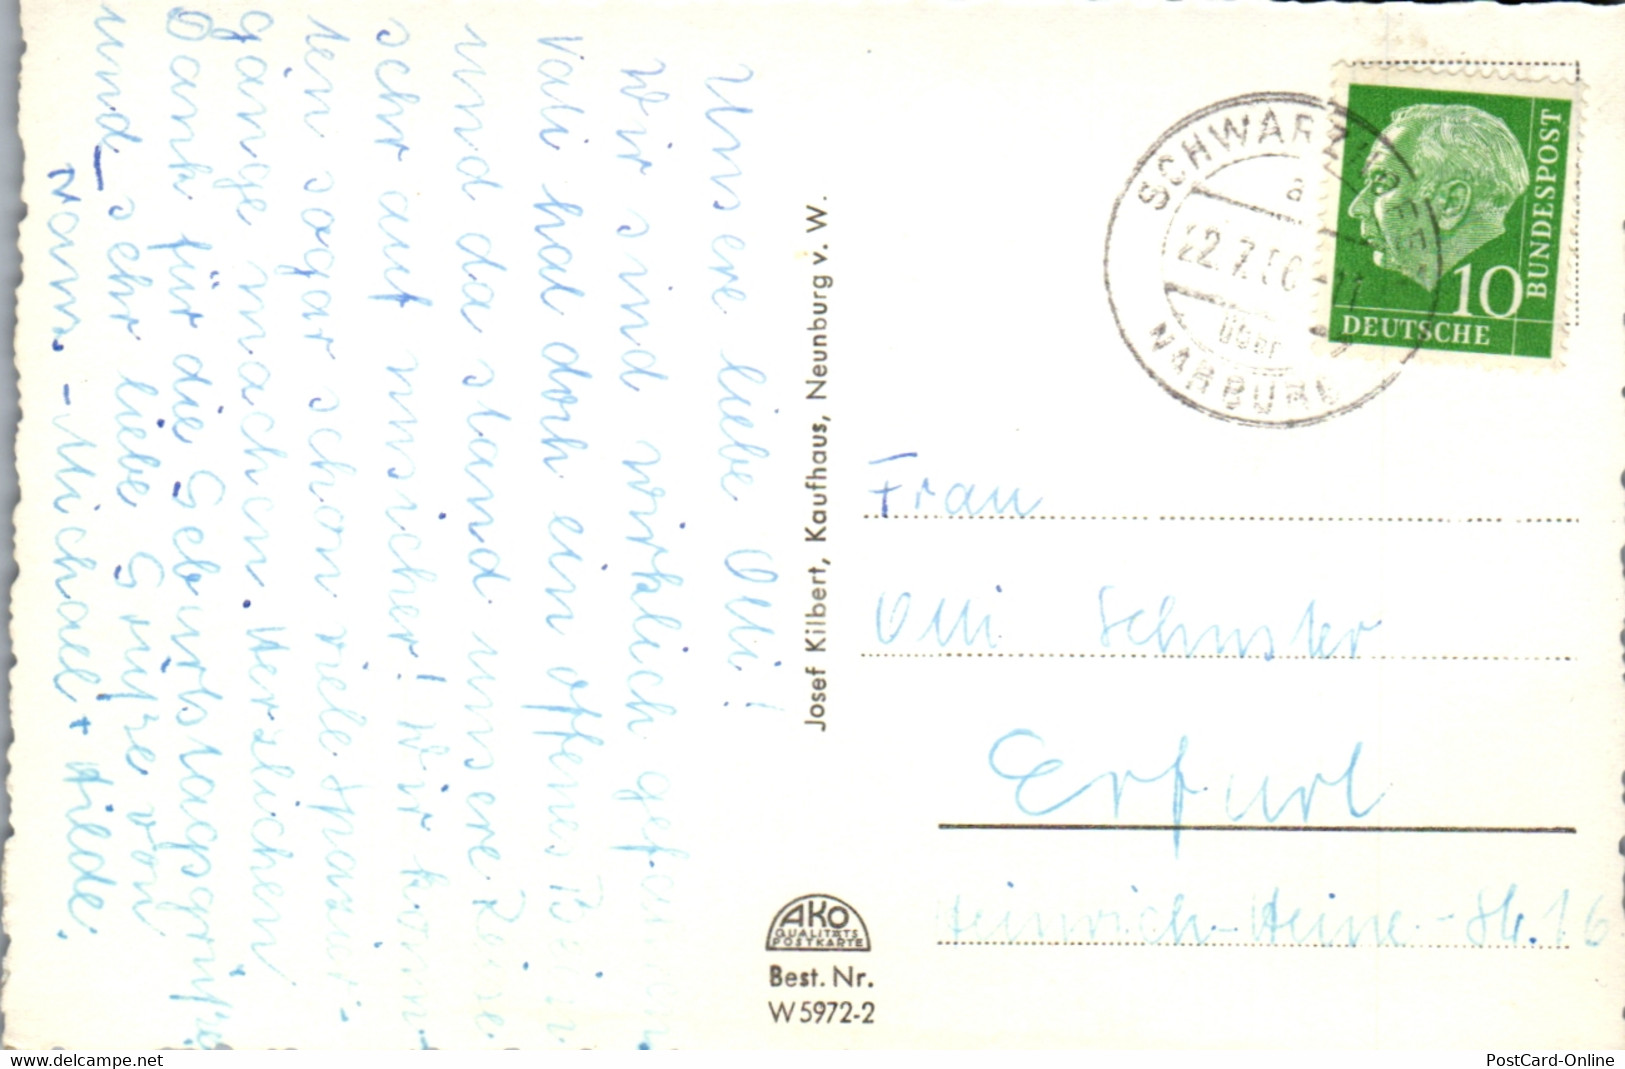 Unsere liebe Olli!
Wir sind wirklich gefahren
Vati hat doch ein offenes Bein
und da stand unsere Reise
sehr auf unsicher! Wir konn
ten sogar schon viele Spazier-
gänge machen. Herzlichen
Dank für die Geburtstagsgrüße
und sehr liebe Grüße von
Hans.-Michael + Hilde.
Josef Kilbert, Kaufhaus, Neunburg v. W.
AKO
QUALITÄTS
POSTKARTE
Best. Nr.
W 5972-2
SCHWARZHOFEN
a
22.7.56
über
NABBURG
10
DEUTSCHE
BUNDESPOST
Frau
Olli Schuster
Erfurt
Heinrich-Heine-Str. 16
www.delcampe.net
PostCard-Online